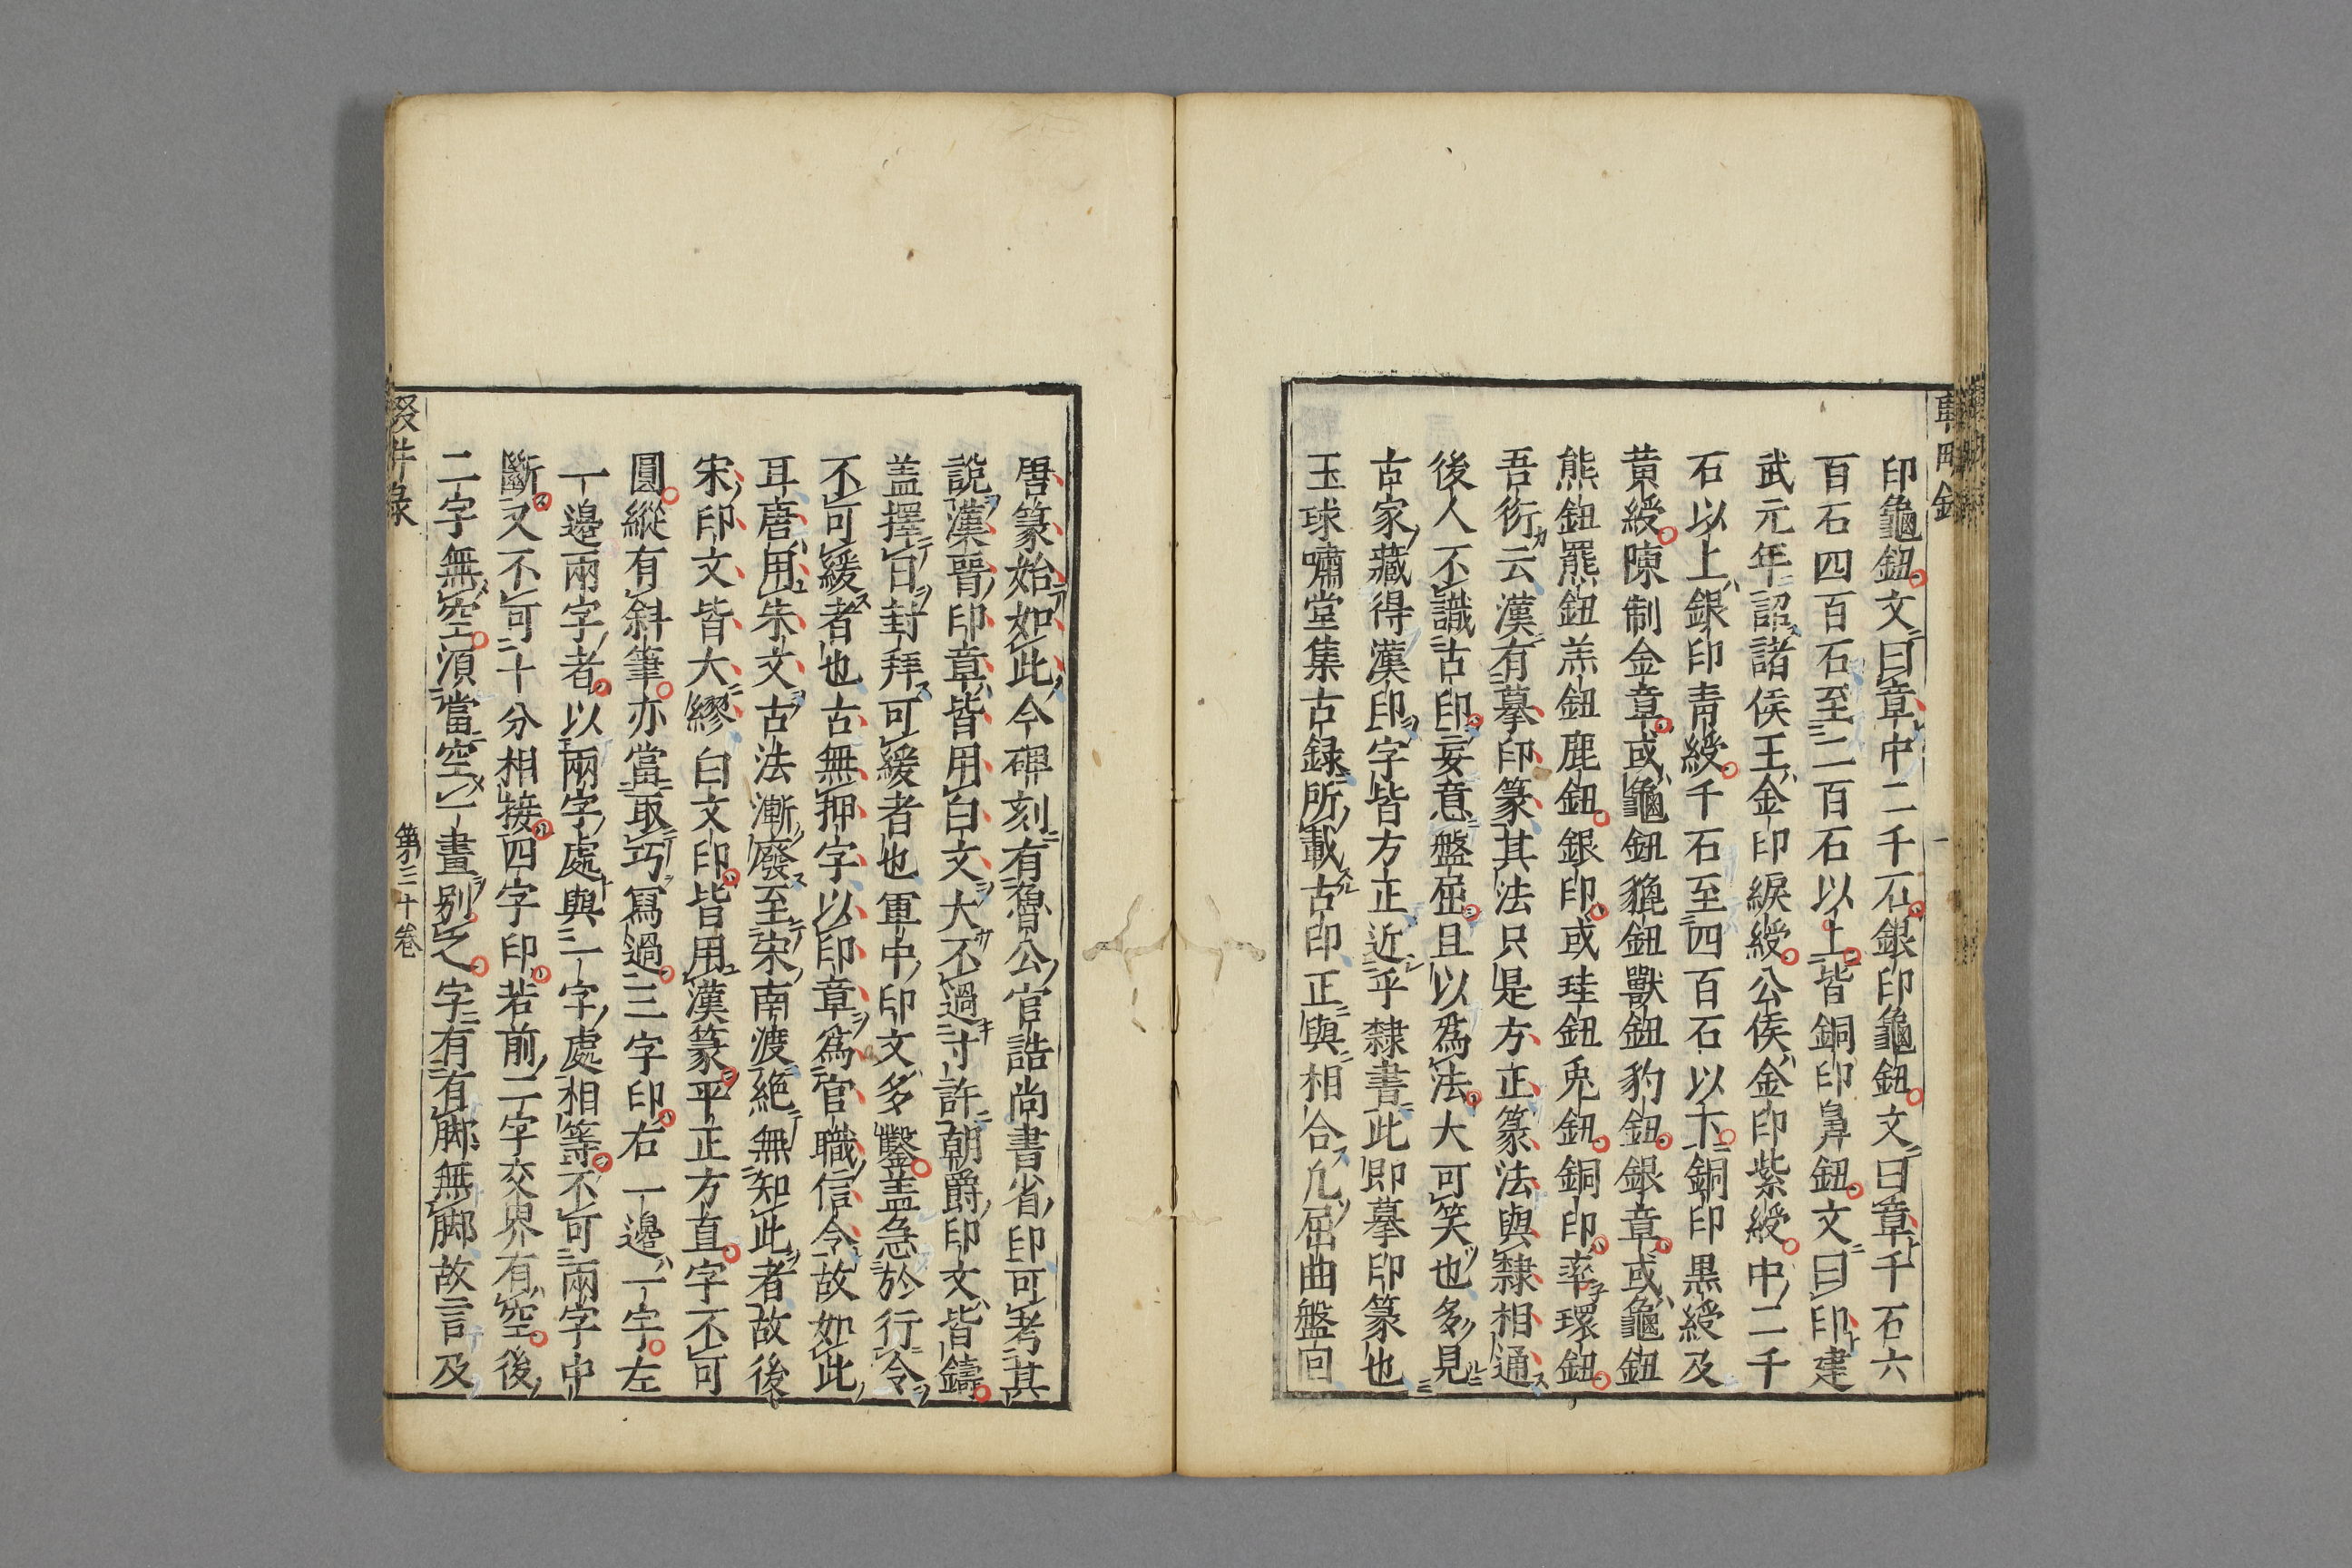 印龜鈕文曰章中二千石銀印龜鈕文曰章千石六
百石四百石至二百石以上皆銅印鼻鈕文曰印建
武元年詔諸侯王金印綟綬公侯金印紫綬中二千
石以上銀印青綬千石至四百石以下銅印黒綬及
黄綬陳制金章或龜鈕貔鈕獸鈕豹鈕銀章或龜鈕
熊鈕羆鈕羔鈕鹿鈕銀印或珪鈕兎鈕銅印率環鈕
吾衍云漢有摹印篆其法只是方正篆法與隸相通
後人不識古印妄意盤屈且以爲法大可笑也多見
古家藏得漢印字皆方正近乎隸書此即摹印篆也
玉球嘯堂集古録所載古印正與相合凢屈曲盤回
唐篆始如此今碑刻有魯公官誥尚書省印可考其
說漢晉印章皆用白文大不過寸許朝爵印文皆鑄
盖擇日封拜可緩者也軍中印文多鑿盖急於行令
不可緩者也古無押字以印章爲官職信令故如此
耳唐用朱文古法漸廢至宋南渡絶無知此者故後
宋印文皆大繆白文印皆用漢篆平正方直字不可
圓縱有斜筆亦當取巧寫過三字印右一邊一字左
一邊兩字者以兩字處與一字處相等不可兩字中
斷又不可十分相接四字印若前二字交界有空後
二字無空湏當空一畫别之字有有脚無脚故言及
第三十卷